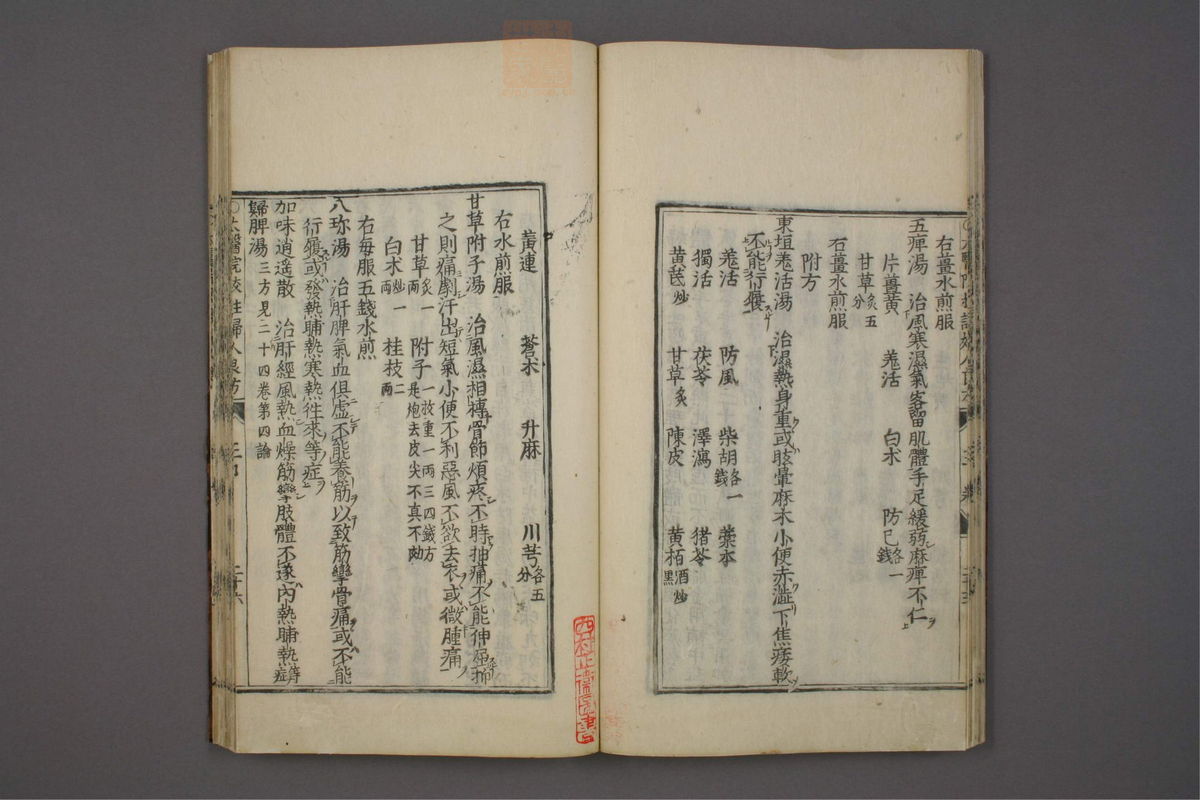 右薑水煎服
五痺湯　治風寒濕氣客留肌體手足緩弱麻痺不仁
片薑黃　羗活　白朮　防己各一錢
甘草炙五分
右薑水煎服
附方
東垣羗活湯　治濕熱身重或眩暈麻木小便赤澁下焦痿軟
不能行履
羗活　防風　柴胡各一錢　藁本
獨活　茯苓　澤瀉　猪苓
黃芪炒　甘草炙　陳皮　黃栢酒炒黑
黃連　蒼朮　升麻　川芎各五分
右水煎服
甘草附子湯　治風濕相摶骨節煩疼不時抽痛不能伸屈抑
之則痛劇汗出短氣小便不利惡風不欲去衣或微腫痛
甘草炙一兩　附子一枚重一兩三四錢方是炮去皮尖不真不効
白朮炒一兩　桂枝二兩
右每服五錢水煎
八珍湯　治肝脾氣血俱虛不能養筋以致筋攣骨痛或不能
行履或發熱晡熱寒熱徃來等症
加味逍遥散　治肝經風熱血燥筋攣肢體不遂內熱晡熱等症
歸脾湯三方見二十四卷第四論
○太醫院校註婦人良方　三卷　二十六